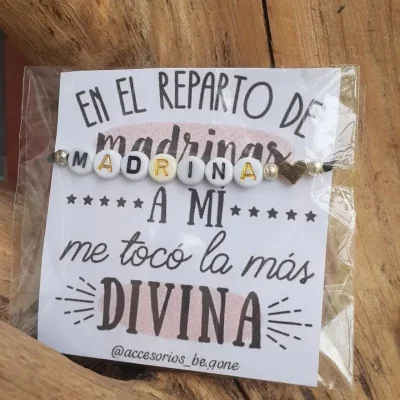 EN EL REPARTO DE
madrinas
MADRINA
A MÍ
me tocó la más
DIVINA
@accesorios_be.gone